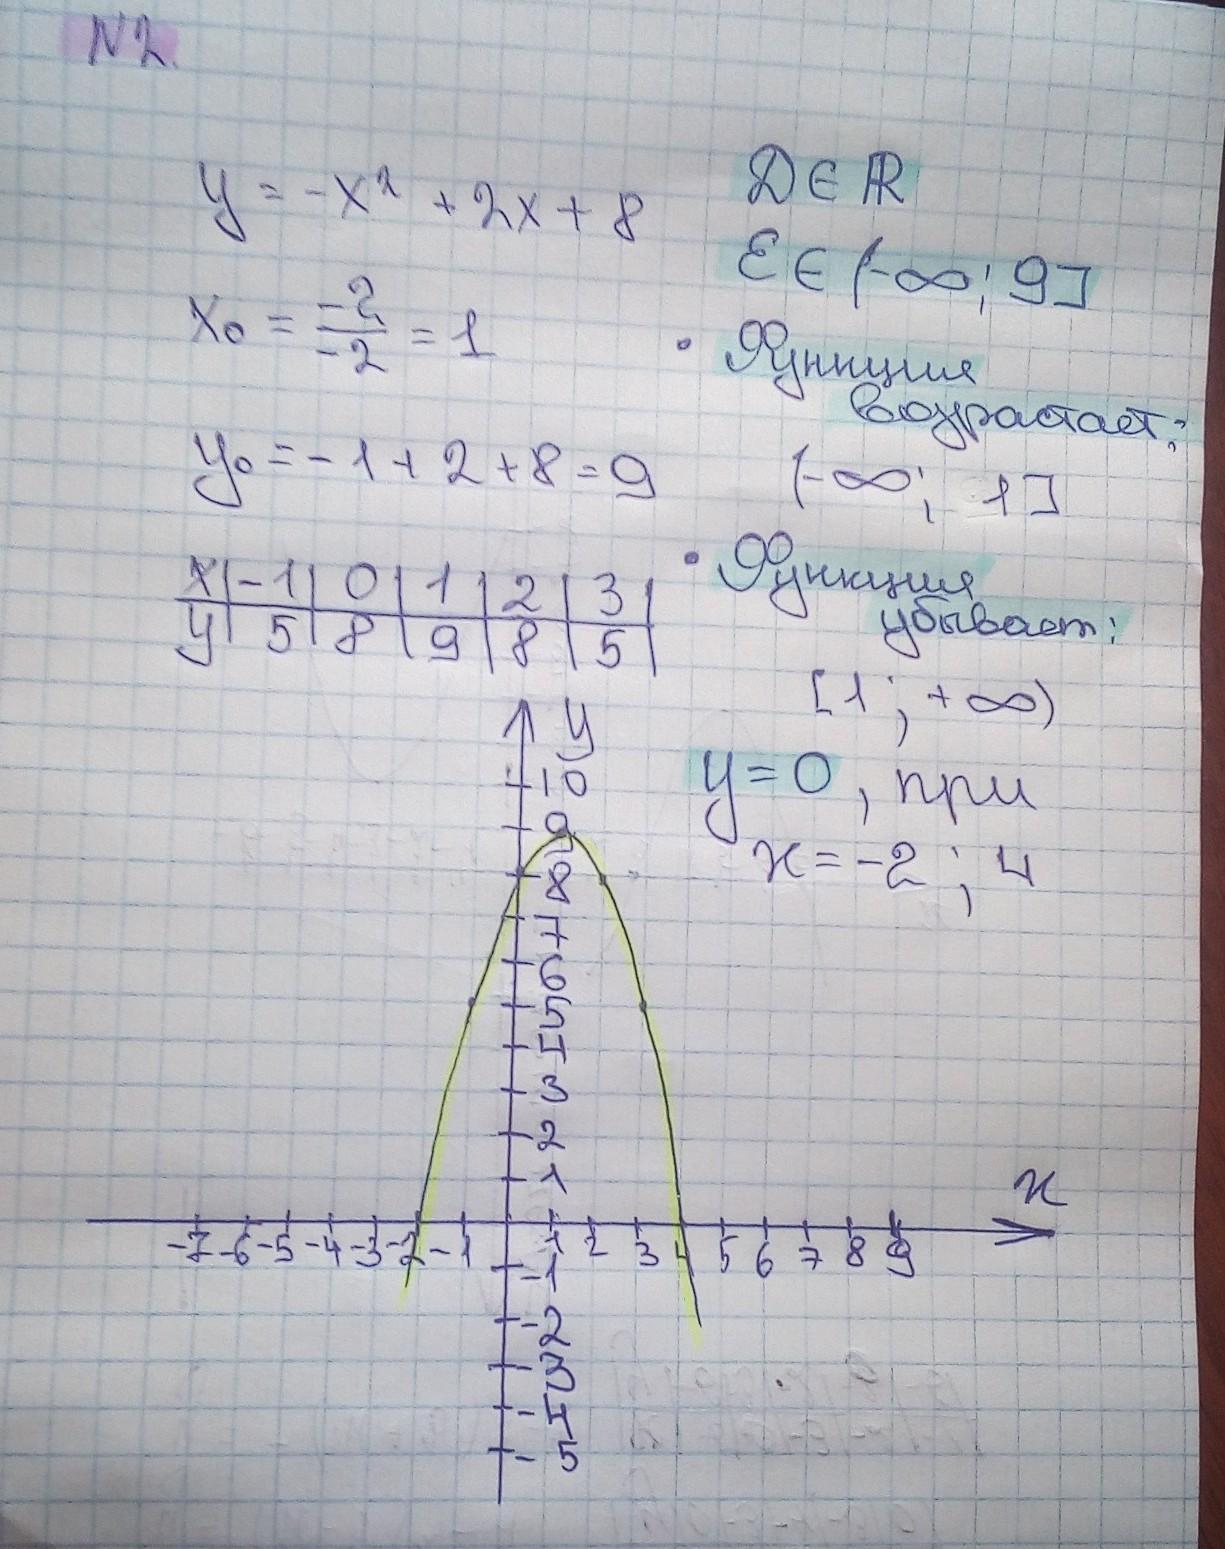 N2.
y = -x² + 2x + 8
x₀ = -2/-2 = 1
y₀ = -1 + 2 + 8 = 9
x | -1 | 0 | 1 | 2 | 3
y | 5 | 8 | 9 | 8 | 5
D ∈ ℝ
E ∈ (-∞; 9]
• Функция
возрастает:
(-∞; 1]
• Функция
убывает:
[1; +∞)
y = 0, при
x = -2; 4
y
10
9
8
7
6
5
4
3
2
1
x
-7 -6 -5 -4 -3 -2 -1 1 2 3 4 5 6 7 8 9
-1
-2
-3
-4
-5